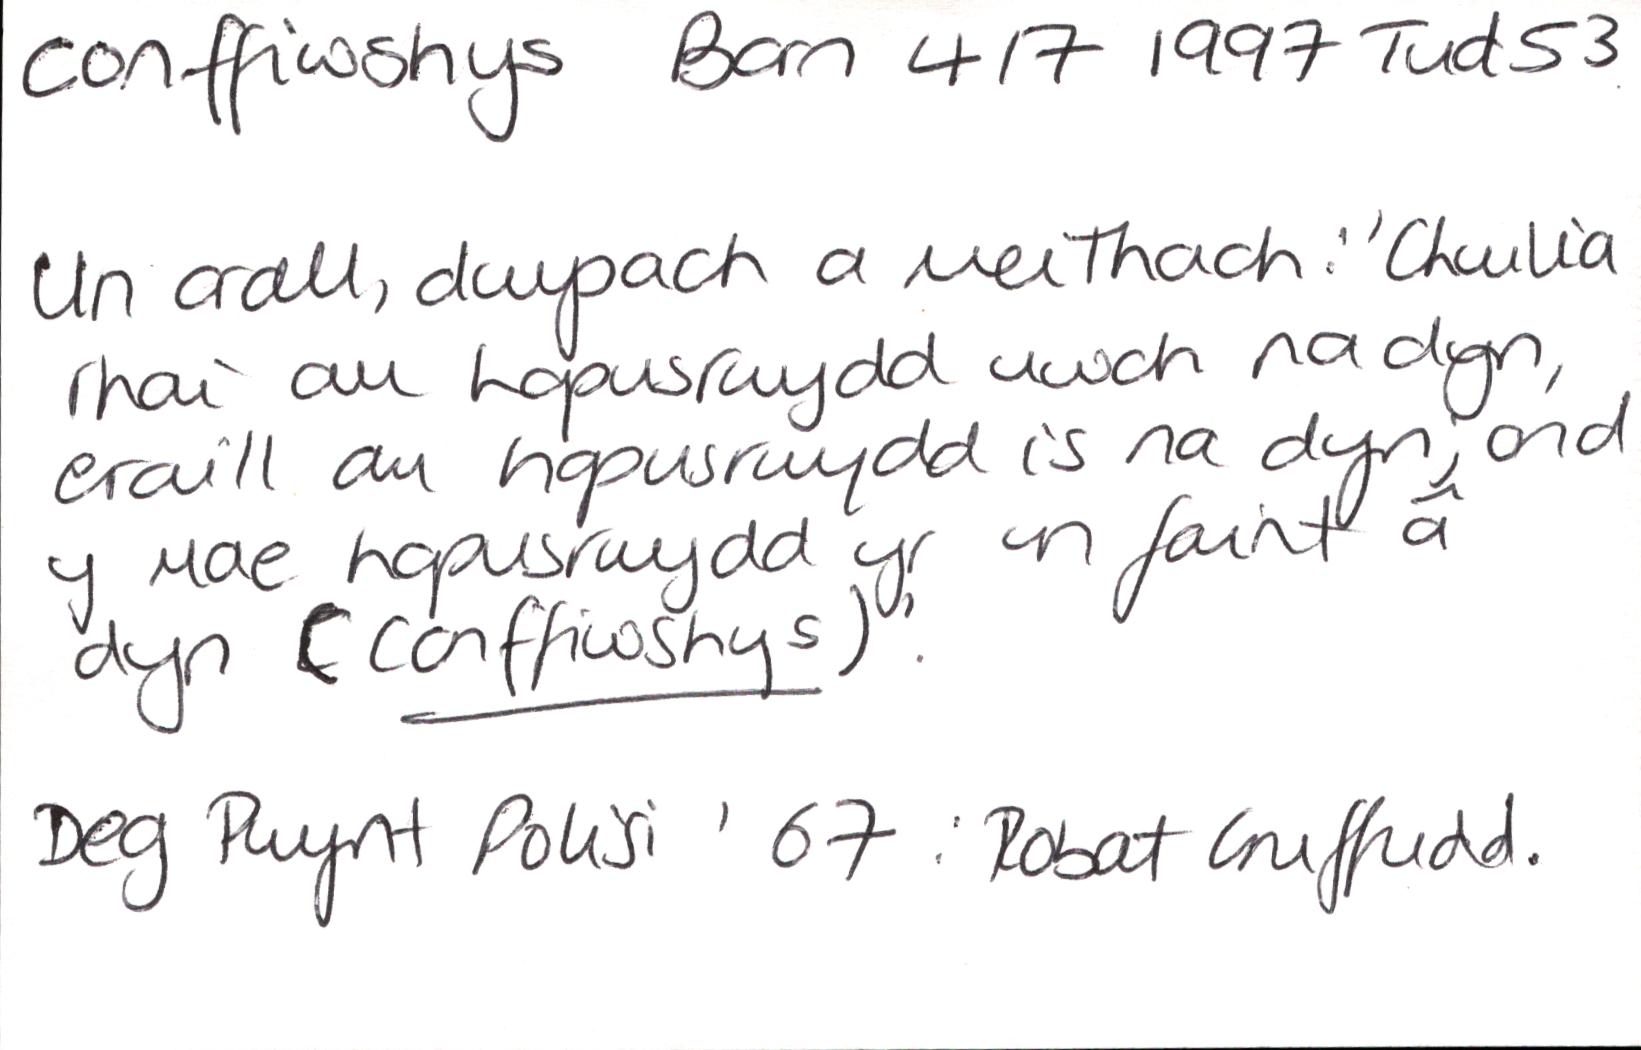 Conffiwshys Barn 417 1997 Tud 53
Un arall, dwypach a meithach: 'Chwilia
rhai am hapusrwydd uwch na dyn,
eraill am hapusrwydd is na dyn, ond
y mae hapusrwydd yr un faint â
dyn (Conffiwshys)'.
Deg Pwynt Polisi '67 : Robat Gruffudd.